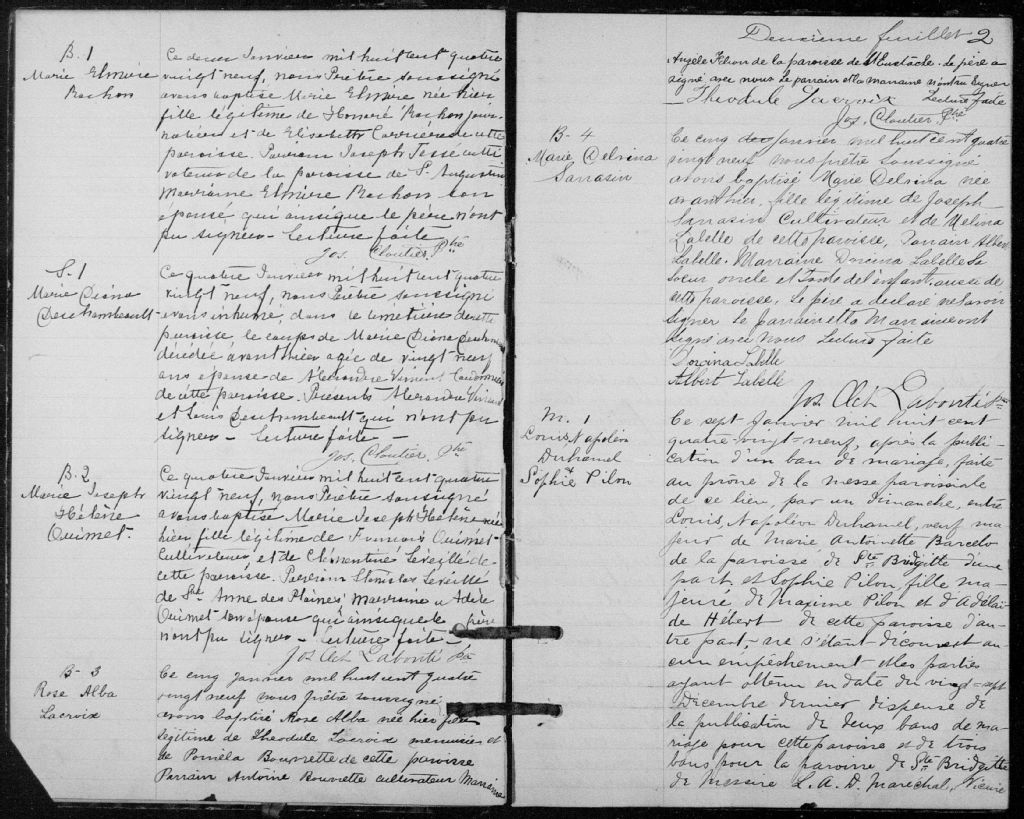 B. 1
Marie Elmire
Rochon
Ce deux Janvier mil huit cent quatre
vingt neuf, nous Prêtre soussigné
avons baptisé Marie Elmire née hier
fille légitime de Honoré Rochon jour-
nalier et de Elisabeth Carrière de cette
paroisse. Parrain Joseph Tessé culti
vateur de la paroisse de St. Augustin
Marraine Elmire Rochon son
épouse qui ainsi que le père n'ont
pu signer - Lecture faite
Jos. Cloutier, Ptre
S. 1
Marie Diana
Deschambeault
Ce quatre Janvier mil huit cent quatre
vingt neuf, nous Prêtre soussigné
avons inhumé, dans le cimetière de cette
paroisse le corps de Marie Diana
décédée avant hier agée de vingt neuf
ans épouse de Alexandre Vincent
de cette paroisse. Présents Alexandre Vincent
et Louis Deschambeault qui n'ont pu
signer - Lecture faite -
Jos. Cloutier, Ptre
B. 2
Marie Joseph
Hélène
Ouimet
Ce quatre Janvier mil huit cent quatre
vingt neuf, nous Prêtre soussigné
avons baptisé Marie Joseph Hélène née
hier fille légitime de François Ouimet
Cultivateur et de Clémentine Léveillé de
cette paroisse. Parrain Stanislas Léveillé
de Ste Anne des Plaines Marraine Adèle
Ouimet son épouse qui ainsi que le père
n'ont pu signer - Lecture faite -
Jos Oct Labonté Ptr
B- 3
Rose Alba
Lacroix
Ce cinq janvier mil huit cent quatre
vingt neuf nous prêtre soussigné
avons baptisé Rose Alba née hier fille
légitime de Theodule Lacroix menuisier et
de Poméla Bourrette de cette paroisse
Parrain Antoine Bourrette cultivateur Marraine
Deuxième feuillet 2
Angèle de la paroisse de St Eustache. Le père a
signé avec nous le parrain et la marraine n'ont su signer
- Theodule Lacroix Lecture faite
Jos. Cloutier, Ptre
B- 4
Marie Delvina
Sarrasin
Ce cinq des Janvier mil huit cent quatre
vingt neuf nous prêtre soussigné
avons baptisé Marie Delvina née
avant hier, fille légitime de Joseph
Sarrasin Cultivateur et de Melina
Labelle de cette paroisse, Parrain Albert
Labelle. Marraine Dorcina Labelle sa
soeur oncle et tante de l'enfant, aussi de
cette paroisse. Le père a déclaré ne savoir
signer le parrain et la Marraine ont
signé avec nous Lecture faite
Dorcina Labelle
Albert Labelle
Jos. Oct. Labonté Ptre
M. 1
Louis, Napoléon
Duhamel
&
Sophie Pilon
Ce sept Janvier mil huit cent
quatre-vingt-neuf, après la publi-
cation d'un ban de mariage, faite
au prône de la messe paroissiale
de ce lieu par un dimanche, entre
Louis, Napoléon Duhamel, veuf ma
jeur de Marie Antoinette Barcelo
de la paroisse de Ste Bridgitte d'une
part, et Sophie Pilon, fille ma-
jeure de Maxime Pilon et d'Adélaï-
de Hébert de cette paroisse d'au-
tre part, ne s'étant découvert au
cun empêchement et les parties
ayant obtenu en date du vingt-sept
Décembre dernier dispense de
la publication de deux bans de ma-
riage pour cette paroisse et de trois
bans pour la paroisse de Ste Bridgitte
de Messire L. A. D. Maréchal, Vicaire